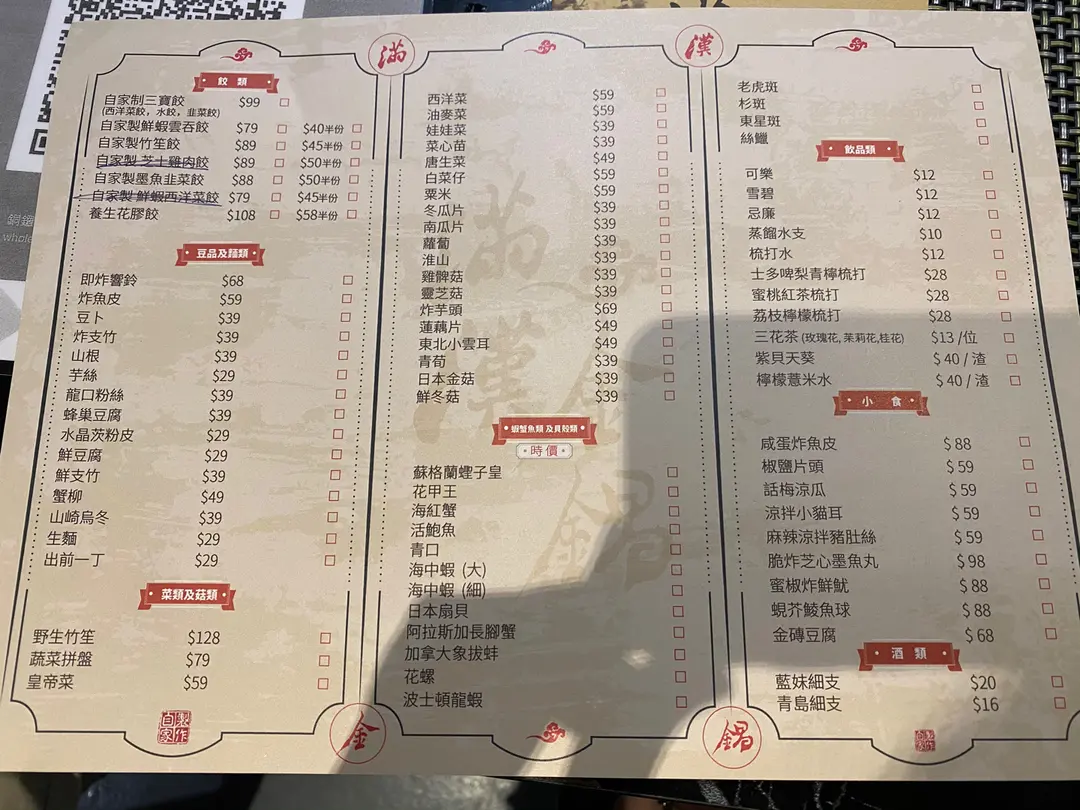 滿
漢
餃 類
自家制三寶餃 $99
(西洋菜餃，水餃，韭菜餃)
自家製鮮蝦雲吞餃 $79 $40半份
自家製竹笙餃 $89 $45半份
自家製 芝士雞肉餃 $89 $50半份
自家製墨魚韭菜餃 $88 $50半份
自家製 鮮蝦西洋菜餃 $79 $45半份
養生花膠餃 $108 $58半份
豆品及麵類
即炸響鈴 $68
炸魚皮 $59
豆卜 $39
炸支竹 $39
山根 $39
芋絲 $29
龍口粉絲 $39
蜂巢豆腐 $39
水晶茨粉皮 $29
鮮豆腐 $29
鮮支竹 $39
蟹柳 $49
山崎烏冬 $39
生麵 $29
出前一丁 $29
菜類及菇類
野生竹笙 $128
蔬菜拼盤 $79
皇帝菜 $59
西洋菜 $59
油麥菜 $59
娃娃菜 $59
菜心苗 $39
唐生菜 $49
白菜仔 $59
粟米 $59
冬瓜片 $39
南瓜片 $39
蘿蔔 $39
淮山 $39
雞髀菇 $39
靈芝菇 $39
炸芋頭 $69
蓮藕片 $49
東北小雲耳 $49
青荀 $39
日本金菇 $39
鮮冬菇 $39
蝦蟹魚類 及貝殼類
時價
蘇格蘭蟶子皇
花甲王
海紅蟹
活鮑魚
青口
海中蝦 (大)
海中蝦 (細)
日本扇貝
阿拉斯加長腳蟹
加拿大象拔蚌
花螺
波士頓龍蝦
老虎斑
杉斑
東星斑
絲鱲
飲品類
可樂 $12
雪碧 $12
忌廉 $12
蒸餾水支 $10
梳打水 $12
士多啤梨青檸梳打 $28
蜜桃紅茶梳打 $28
荔枝檸檬梳打 $28
三花茶 (玫瑰花, 茉莉花,桂花) $13 /位
紫貝天葵 $ 40 / 渣
檸檬薏米水 $ 40 / 渣
小 食
咸蛋炸魚皮 $ 88
椒鹽片頭 $ 59
話梅涼瓜 $ 59
涼拌小貓耳 $ 59
麻辣涼拌豬肚絲 $ 59
脆炸芝心墨魚丸 $ 98
蜜椒炸鮮魷 $ 88
蜆芥鯪魚球 $ 88
金磚豆腐 $ 68
酒 類
藍妹細支 $20
青島細支 $16
金
鍋
滿漢金鍋